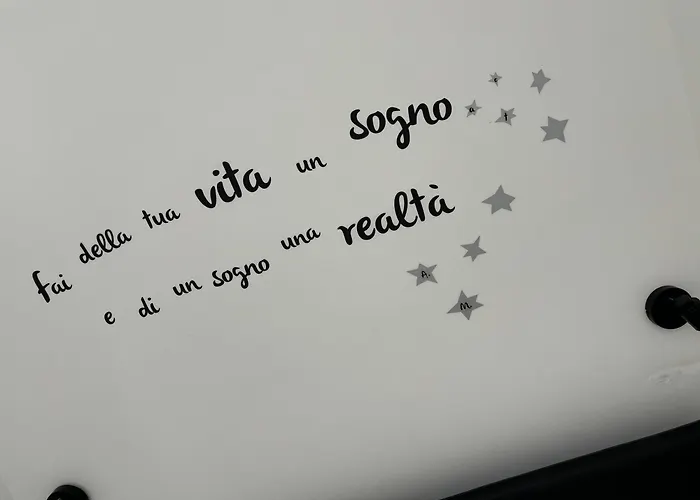 fai della tua vita un sogno
e di un sogno una realtà
A.
M.